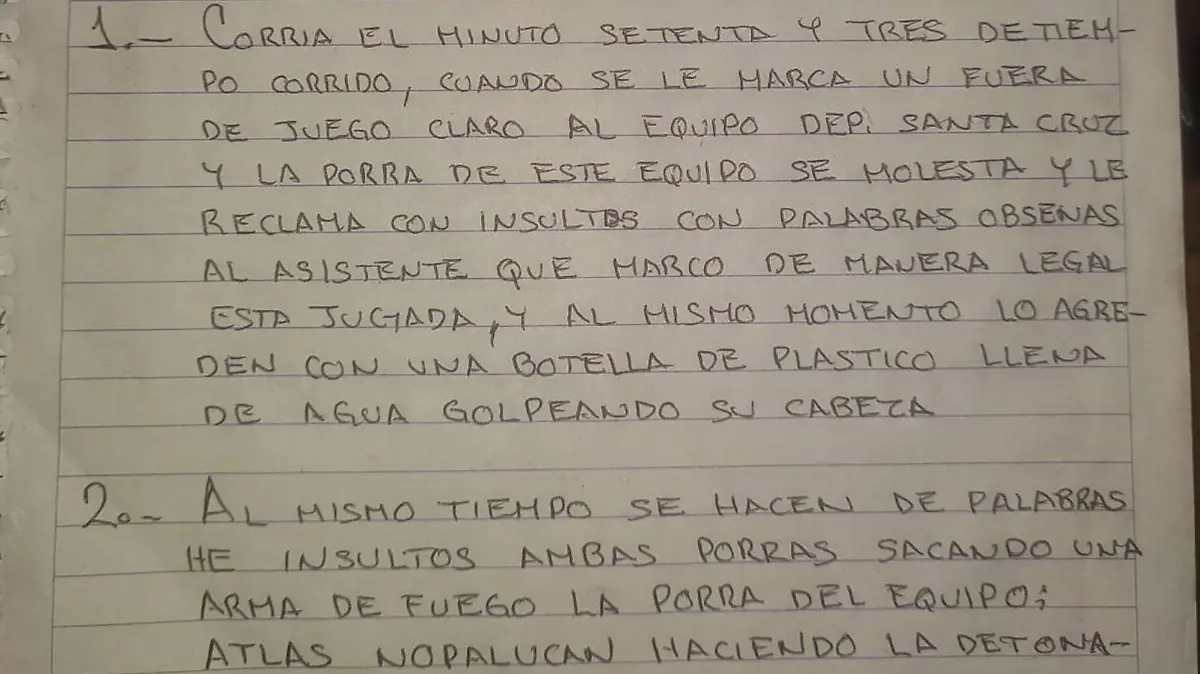 1.- CORRIA EL MINUTO SETENTA Y TRES DE TIEM-
PO CORRIDO, CUANDO SE LE MARCA UN FUERA
DE JUEGO CLARO AL EQUIPO DEP; SANTA CRUZ
Y LA PORRA DE ESTE EQUIPO SE MOLESTA Y LE
RECLAMA CON INSULTOS CON PALABRAS OBSENAS
AL ASISTENTE QUE MARCO DE MANERA LEGAL
ESTA JUGADA, Y AL MISMO MOMENTO LO AGRE-
DEN CON UNA BOTELLA DE PLASTICO LLENA
DE AGUA GOLPEANDO SU CABEZA
2.- AL MISMO TIEMPO SE HACEN DE PALABRAS
HE INSULTOS AMBAS PORRAS SACANDO UNA
ARMA DE FUEGO LA PORRA DEL EQUIPO;
ATLAS NOPALUCAN HACIENDO LA DETONA-